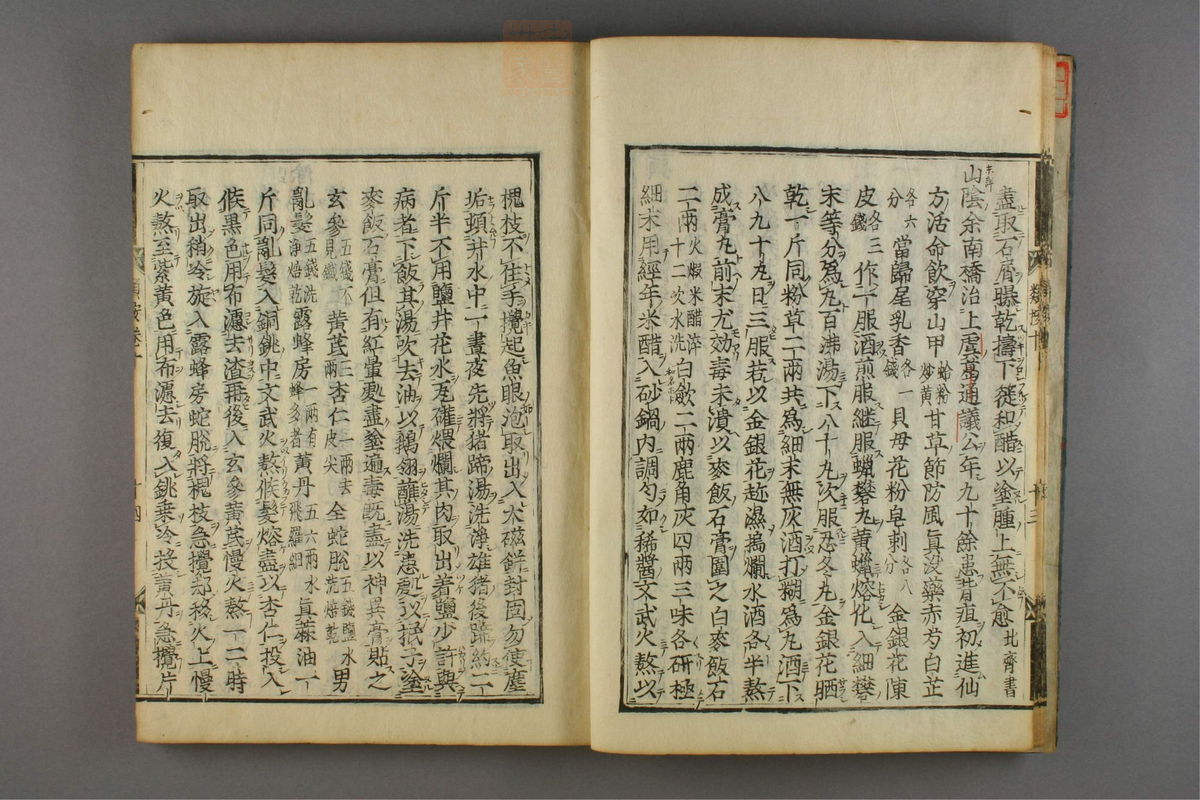 盡取石屑曝乾擣下簁和醋以塗腫上無不愈北齊書
山陰余南橋治上虞葛通議公年九十餘患背疽初進仙
方活命飲穿山甲蛤粉炒黃甘草節防風真沒藥赤芍白芷
各六分當歸尾乳香各一錢貝母花粉皂刺各八分金銀花陳
皮各三錢作一服酒煎服継服蠟礬丸黄蠟熔化入細礬
末等分為丸百沸湯下八十九次服忍冬丸金銀花晒
乾一斤同粉草二兩共為細末無灰酒打糊為丸酒下
八九十丸日三服若以金銀花趂濕搗爛水酒各半熬
成膏丸前末尤効毒未潰以麥飯石膏圍之白麥飯石
二兩火煅米醋淬十二次水洗白歛二兩鹿角灰四兩三味各研極
細末用經年米醋入砂鍋内調勺如稀醬文武火熬以
槐枝不住手攪起魚眼泡取出入大磁鉼封固勿使塵
垢頓井水中一晝夜先將猪蹄湯洗淨雄猪後蹄約二
斤半不用鹽井花水瓦礶煨爛其肉取出着鹽少許與
病者下飯其湯吹去油以鵝翎蘸湯洗患處以抿子塗
麥飯石膏但有紅暈處盡塗遍毒既盡以神異膏貼之
玄參五錢不見鐵黄芪二兩杏仁一兩去皮尖全蛇脫五錢鹽水洗焙乾男
亂髮五錢洗淨焙乾露蜂房一兩有蜂多者黄丹五六兩水飛羅細真蔴油一
斤同亂髮入銅銚中文武火熬候髮熔盡以杏仁投入
候黒色用布濾去渣再後入玄參黃芪慢火熬一二時
取出稍冷旋入露蜂房蛇脫將槐枝急攪却移火上慢
火熬至紫黄色用布濾去復入銚乗冷投黄丹急攪片